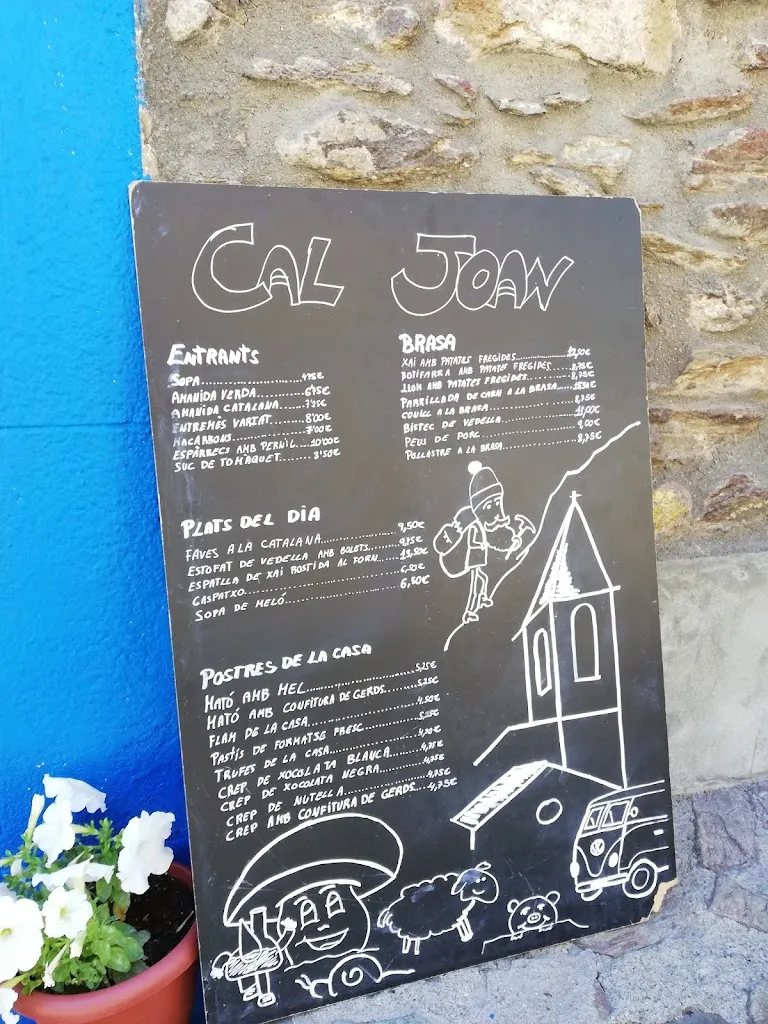 CAL JOAN
ENTRANTS
SOPA 4'75€
AMANIDA VERDA 6'75€
AMANIDA CATALANA 7'25€
ENTREMÉS VARIAT 8'00€
MACARRONS 7'00€
ESPÀRRECS AMB PERNIL 10'00€
SUC DE TOMAQUET 3'50€
BRASA
XAI AMB PATATES FREGIDES 12,50€
BOTIFARRA AMB PATATES FREGIDES 8,75€
LLOM AMB PATATES FREGIDES 8,75€
PARRILLADA DE CARN A LA BRASA
CONILL A LA BRASA 8,75€
BISTEC DE VEDELLA 11,00€
PEUS DE PORC 9,00€
POLLASTRE A LA BRASA 8,75€
PLATS DEL DIA
FAVES A LA CATALANA 9,50€
ESTOFAT DE VEDELLA AMB BOLETS 9,75€
ESPATLLA DE XAI ROSTIDA AL FORN 13,50€
GASPATXO
SOPA DE MELÓ 6,50€
POSTRES DE LA CASA
MATÓ AMB MEL 5,25€
MATÓ AMB CONFITURA DE GERDS 5,25€
FLAM DE LA CASA 4,50€
PASTÍS DE FORMATGE FRESC 5,25€
TRUFES DE LA CASA 4,20€
CREP DE XOCOLATA BLANCA 4,75€
CREP DE XOCOLATA NEGRA 4,75€
CREP DE NUTELLA 4,75€
CREP AMB CONFITURA DE GERDS 4,75€